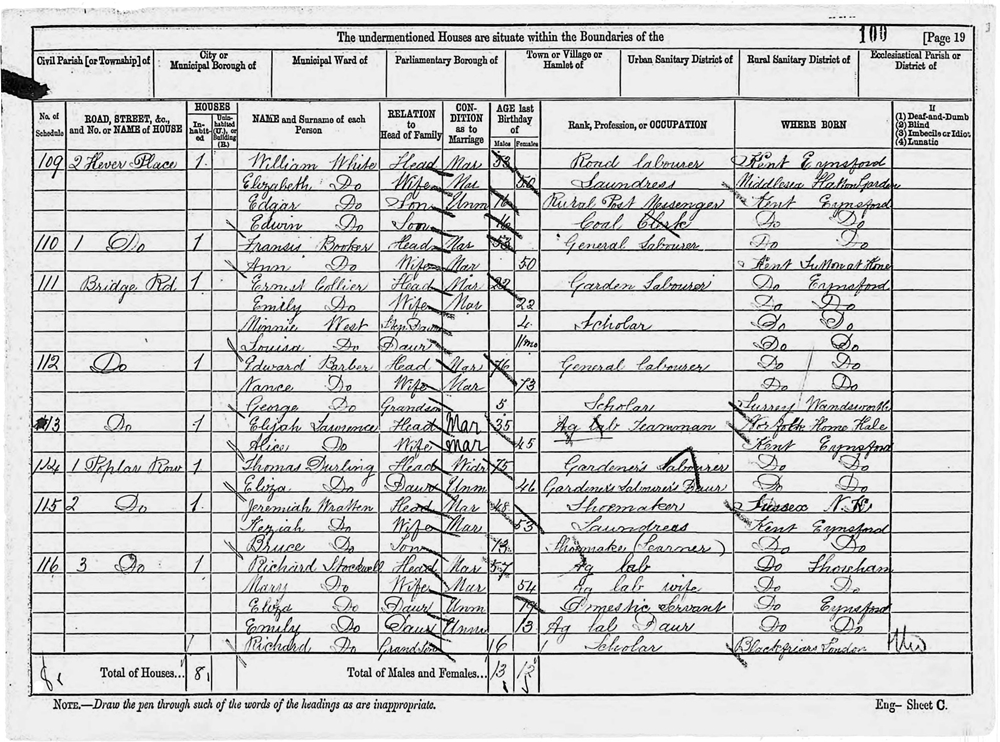 The undermentioned Houses are situate within the Boundaries of the 100 [Page 19
Civil Parish [or Township] of City or Municipal Borough of Municipal Ward of Parliamentary Borough of Town or Village or Hamlet of Urban Sanitary District of Rural Sanitary District of Ecclesiastical Parish or District of
No. of Schedule ROAD, STREET, &c., and No. or NAME of HOUSE HOUSES Inhabited Uninhabited (U.), or Building (B.) NAME and Surname of each Person RELATION to Head of Family CONDITION as to Marriage AGE last Birthday of Males Females Rank, Profession, or OCCUPATION WHERE BORN If (1) Deaf-and-Dumb (2) Blind (3) Imbecile or Idiot (4) Lunatic
109 2 Hever Place 1 William White Head Mar 53 Road Labourer Kent Eynsford
Elizabeth Do Wife Mar 50 Laundress Middlesex Hatton Garden
Edgar Do Son Unm 16 Rural Post Messenger Kent Eynsford
Edwin Do Son Coal Clerk Do Do
110 1 Do 1 Fransis Booker Head Mar 53 General Labourer Do Do
Ann Do Wife Mar 50 Kent Sutton at Hone
111 Bridge Rd. 1 Ernest Collier Head Mar 22 Garden Labourer Do Eynsford
Emily Do Wife Mar 22 Do Do
Minnie West 4 Scholar Do Do
Louisa Do Daur 11mo Do Do
112 Do 1 Edward Barber Head Mar 76 General Labourer Do Do
Nance Do Wife Mar 73 Do Do
George Do Grandson 5 Scholar Surrey Wandsworth
113 Do 1 Elijah Lawrence Head Mar 35 Ag Lab Teamman Norfolk Home Hale
Alice Do Wife mar 45 Kent Eynsford
114 1 Poplar Row 1 Thomas Durling Head Widr 75 Gardener's Labourer Do Do
Eliza Do Daur Unm 46 Gardener's Labourer's Daur Do Do
115 2 Do 1 Jeremiah Wratten Head Mar 48 Shoemaker Sussex N.K.
Keziah Do Wife Mar 53 Laundress Kent Eynsford
Bruce Do Son 13 Shoemaker (Learner) Do Do
116 3 Do 1 Richard Stockwell Head Mar 57 Ag lab Do Shoreham
Mary Do Wife Mar 54 Ag lab wife Do Do
Eliza Do Daur Unm 19 Domestic Servant Do Eynsford
Emily Do Daur Unm 13 Ag lab Daur Do Do
Richard Do Grandson 6 Scholar Blackfriars London
8 Total of Houses... 8 Total of Males and Females... 13 12
NOTE.—Draw the pen through such of the words of the headings as are inappropriate. Eng— Sheet C.